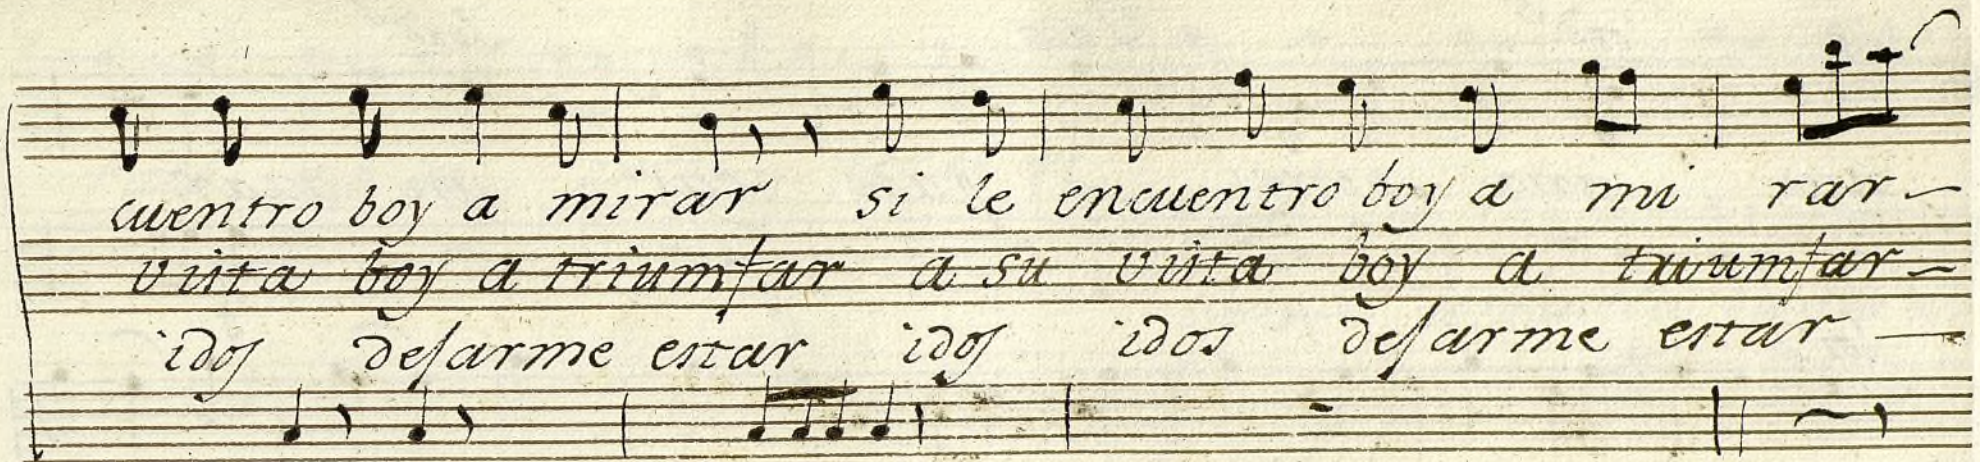 cuentro boy a mirar si le encuentro boy a mi rar
vista boy a triumfar a su vista boy a triumfar
idos desarme estar idos idos desarme estar